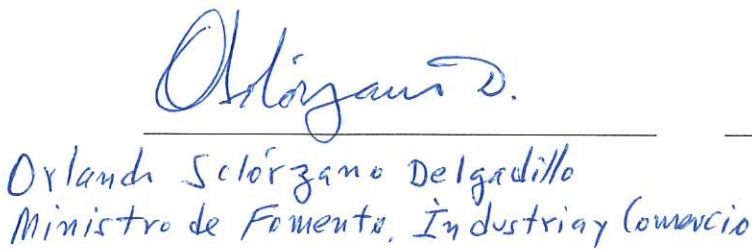 OSolórzano D.
Orlando Solórzano Delgadillo
Ministro de Fomento, Industria y Comercio